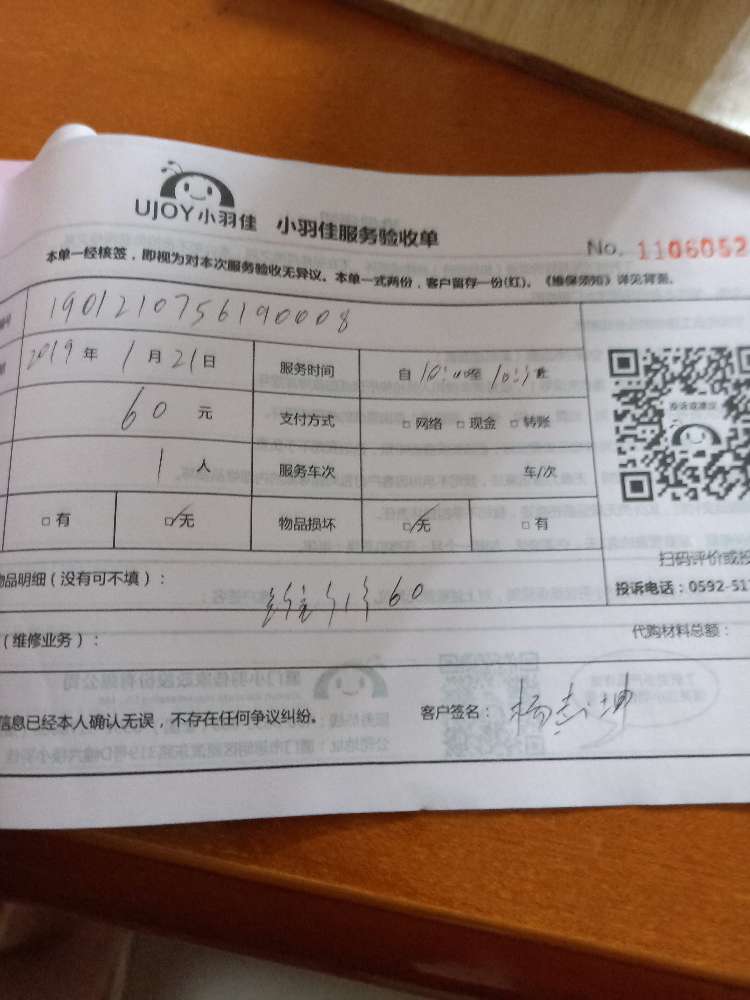 UJOY小羽佳 小羽佳服务验收单
No. 1106052
本单一经核签，即视为对本次服务验收无异议。本单一式两份，客户留存一份(红)。《维保须知》详见背面。
1901210756190008
2019年1月21日 服务时间 自10:00至10:
60元 支付方式 □网络 □现金 □转账
1人 服务车次 车/次
□有 ☑无 物品损坏 ☑无 □有
投诉或建议
扫码评价或投
物品明细（没有可不填）： 60
投诉电话：0592-51
（维修业务）： 代购材料总额：
信息已经本人确认无误，不存在任何争议纠纷。 客户签名：杨志坤